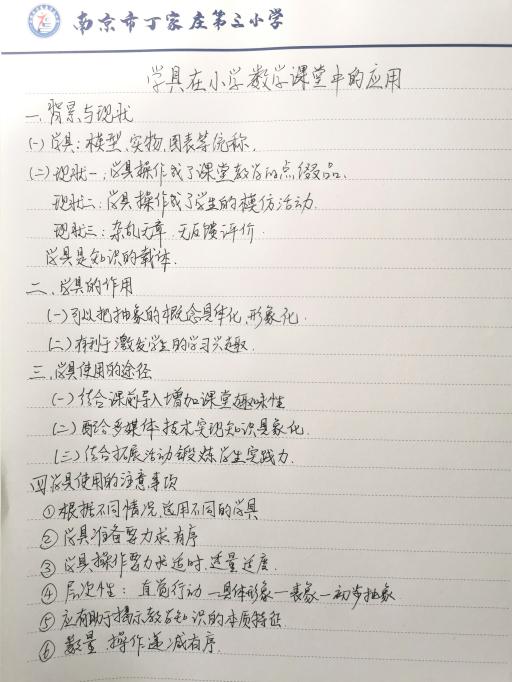 南京市丁家庄第二小学
学具在小学数学课堂中的应用
一、背景与现状
(一)学具：模型、实物、图表等统称.
(二)现状一：学具操作成了课堂教学的点缀品.
现状二：学具操作成了学生的模仿活动.
现状三：杂乱无章，无反馈评价.
学具是知识的载体.
二、学具的作用
(一)可以把抽象的概念具体化、形象化.
(二)有利于激发学生的学习兴趣.
三、学具使用的途径
(一)结合课前导入增加课堂趣味性
(二)配合多媒体技术实现知识具象化.
(三)结合拓展活动锻炼学生实践力.
四、学具使用的注意事项
①根据不同情况选用不同的学具
②学具准备要力求有序
③学具操作要力求适时、适量、适度.
④层次性：直觉行动—具体形象—表象—初步抽象
⑤应有助于揭示数学知识的本质特征.
⑥数量、操作递减有序.